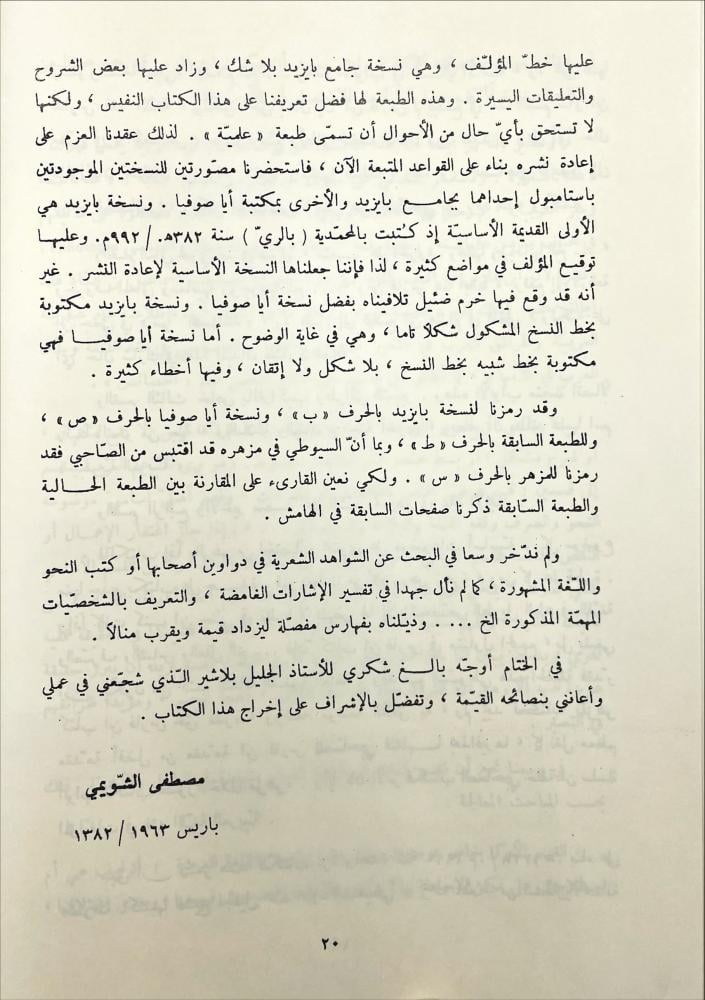 عليها خطّ المؤلّف ، وهي نسخة جامع بايزيد بلا شك ، وزاد عليها بعض الشروح
والتعليقات اليسيرة . وهذه الطبعة لها فضل تعريفنا على هذا الكتاب النفيس ، ولكنها
لا تستحق بأيّ حال من الأحوال أن تسمّى طبعة « علميّة » . لذلك عقدنا العزم على
إعادة نشره بناء على القواعد المتبعة الآن ، فاستحضرنا مصّورتين للنسختين الموجودتين
باستامبول إحداهما بجامع بايزيد والأخرى بمكتبة أيا صوفيا . ونسخة بايزيد هي
الأولى القديمة الأساسيّة إذ كُتبت بالمحمّدية ( بالريّ ) سنة ٣٨٢هـ. / ٩٩٢م. وعليها
توقيع المؤلف في مواضع كثيرة ، لذا فإننا جعلناها النسخة الأساسية لإعادة النشر . غير
أنه قد وقع فيها خرم ضئيل تلافيناه بفضل نسخة أيا صوفيا . ونسخة بايزيد مكتوبة
بخط النسخ المشكول شكلاً تاما ، وهي في غاية الوضوح . أما نسخة أيا صوفيا فهي
مكتوبة بخط شبيه بخط النسخ ، بلا شكل ولا إتقان ، وفيها أخطاء كثيرة .
وقد رمزنا لنسخة بايزيد بالحرف « ب » ، ونسخة أيا صوفيا بالحرف « ص » ،
وللطبعة السابقة بالحرف « ط » ، وبما أنّ السيوطي في مزهره قد اقتبس من الصّاحبي فقد
رمزنا للمزهر بالحرف « س » . ولكي نعين القارىء على المقارنة بين الطبعة الحالية
والطبعة السّابقة ذكرنا صفحات السابقة في الهامش .
ولم ندّخر وسعا في البحث عن الشواهد الشعرية في دواوين أصحابها أو كتب النحو
واللّغة المشهورة ، كما لم نأل جهدا في تفسير الإشارات الغامضة ، والتعريف بالشخصّيات
المهمّة المذكورة الخ ... . وذيّلناه بفهارس مفصّلة ليزداد قيمة ويقرب منالاً .
في الختام أوجّه بالغ شكري للأستاذ الجليل بلاشير الّذي شجّعني في عملي
وأعانني بنصائحه القيّمة ، وتفضّل بالإشراف على إخراج هذا الكتاب .
مصطفى الشّويمي
باريس ١٩٦٣ / ١٣٨٢
٢٠